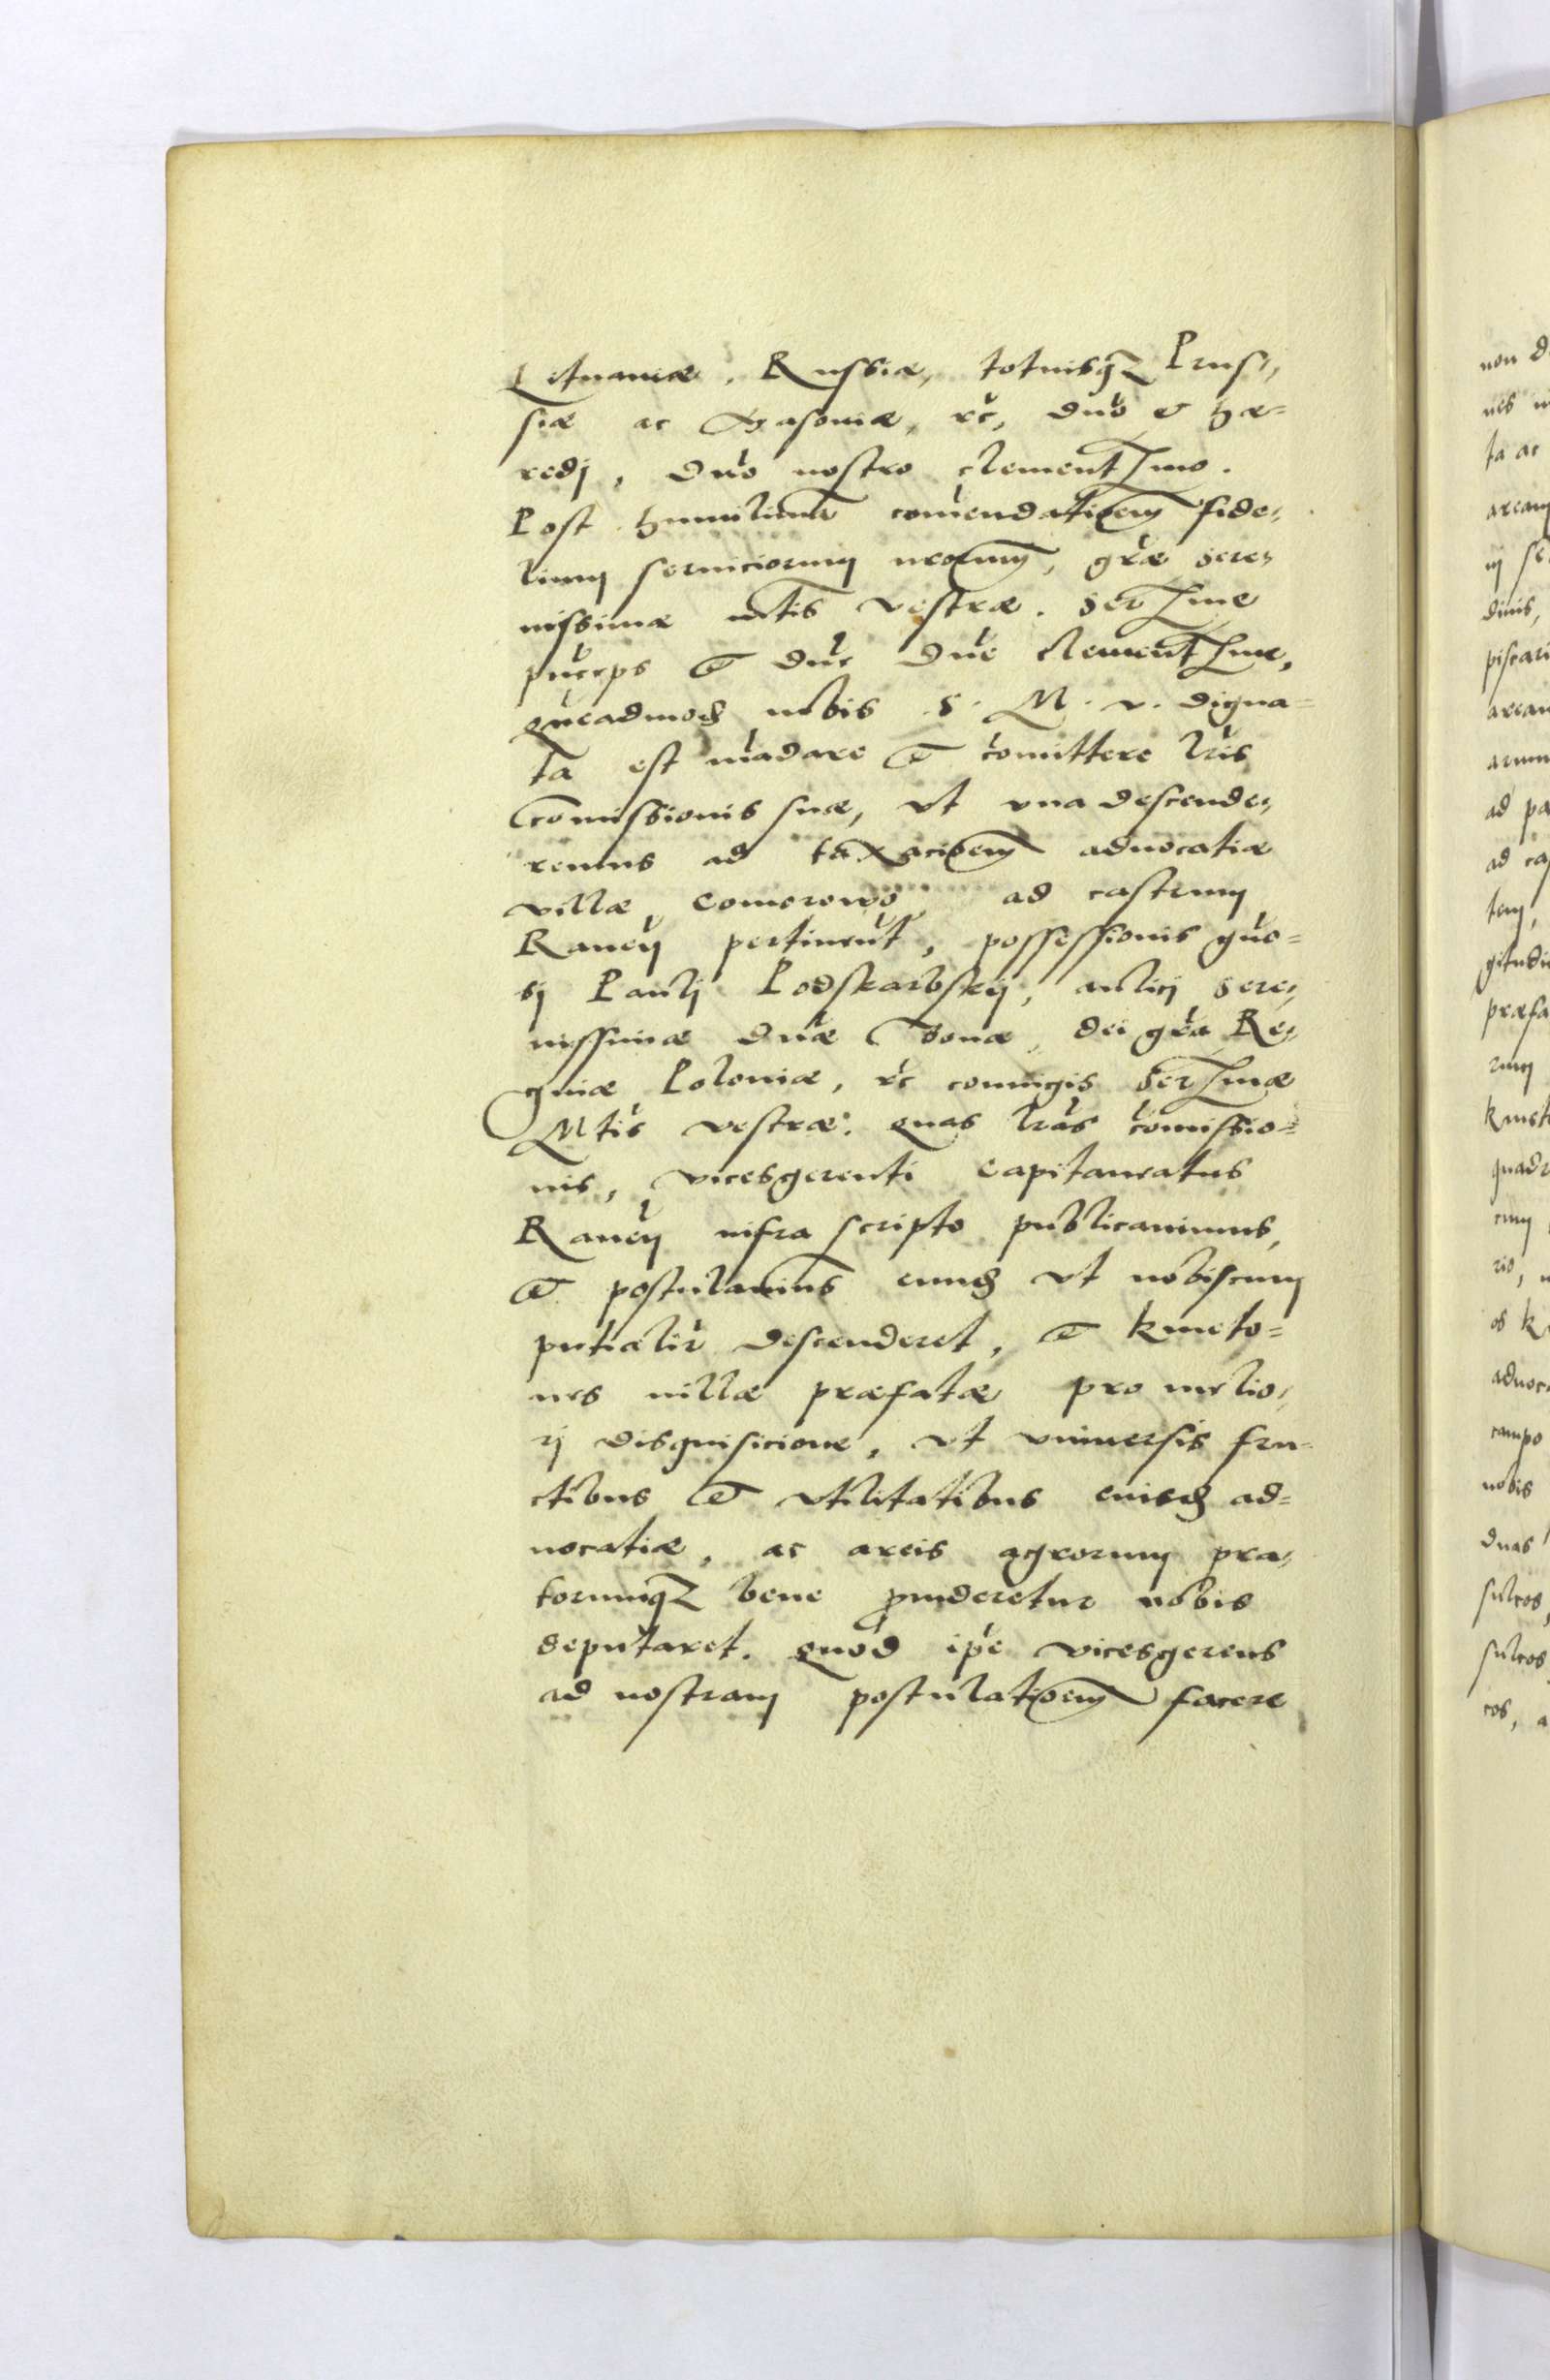 Lituaniæ, Russiæ, totiusq3 Prus-
siæ ac Masouiæ, rc, dno & hæ=
redj, dno nostro clementssmo.
Post humilimã comendacioem fide-
lium seruiciorum nrorum, græ sere-
nissimæ mtis vestræ. Serssme
princeps et dnē dnē clementssme,
quēadmod nobis S. M. v. digna=
ta est mādare et comittere lris
Comissionis suæ, vt vna descende-
remus ad taxacioem aduocatiæ
villæ Comorowo ad castrum
Raueñ pertineñt, possessionis gño=
sj Paulj Podskarbskij, aulicj Sere-
nissimæ dnæ Bonæ, dei gra Re-
ginæ Poloniæ, rc coniugis Serssmæ
Mtis vestræ. quas lras comissio=
nis, vicesgerenti Capitaneatus
Raueñ infra scripto publicauimus,
et postulauimus eund ut nobiscum
prñtialir descenderet, et kmeto=
nes villæ præfatæ pro melio-
rj disquisicione, vt vniuersis fru-
ctibus et vtilitatibus eiusd ad=
uocatiæ, ac areis agrorum pra-
torumq3 bene prouideretur nobis
deputaret. quod ipe vicesgerens
ad nostram postulatioem facere
non d
nes
ta ac
aream
dinis,
piscari
arean
arum
ad pa
ad ca
tem,
gitudi
præfa
rum
kmet
quadr
cum
rio,
os k
aduoc
campo
nobis
duas
sulcos,
sulcos
cos, a